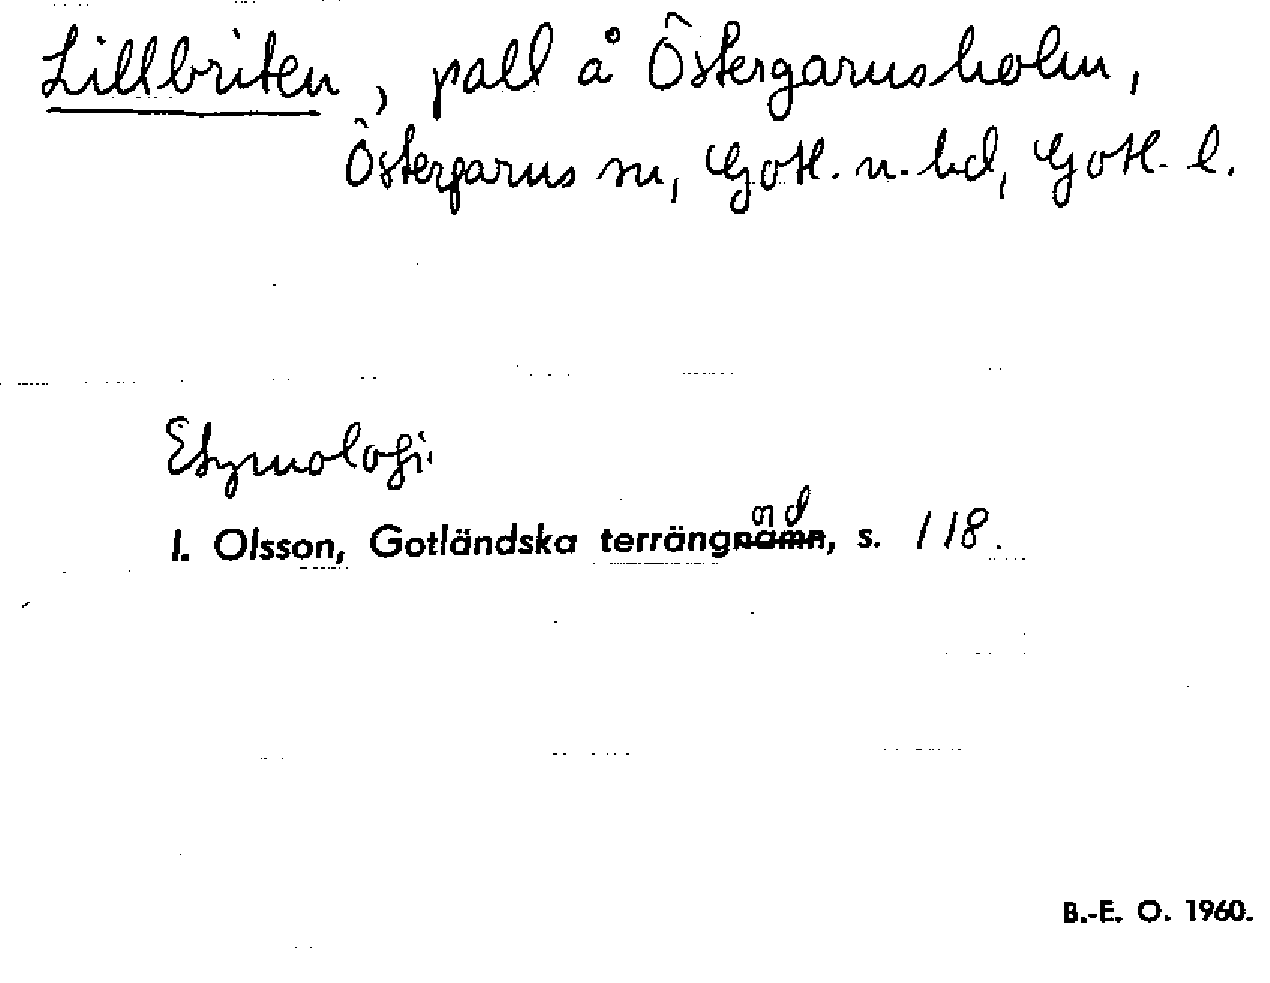 Lillbriten, pall å Östergarnsholm,
Östergarns sn, Gotl. n. hd, Gotl. l.
Etymologi
I. Olsson, Gotländska terrängnamn, s. 118.
ord
B.-E. O. 1960.